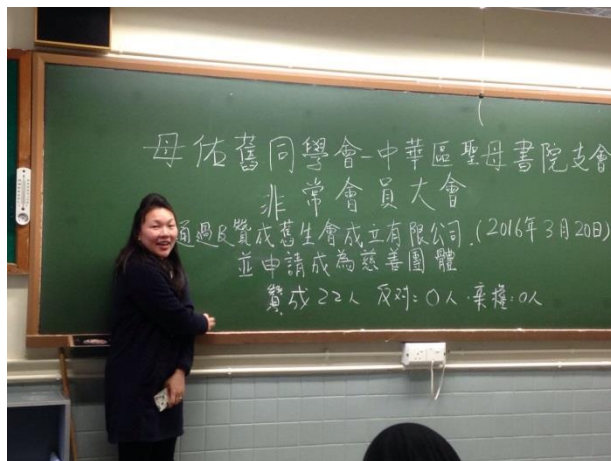 母佑舊同學會-中華區聖母書院支會
非常會員大會
通過及贊成舊生會成立有限公司.(2016年3月20日)
並申請成為慈善團體
贊成22人 反对:0人 棄權:0人